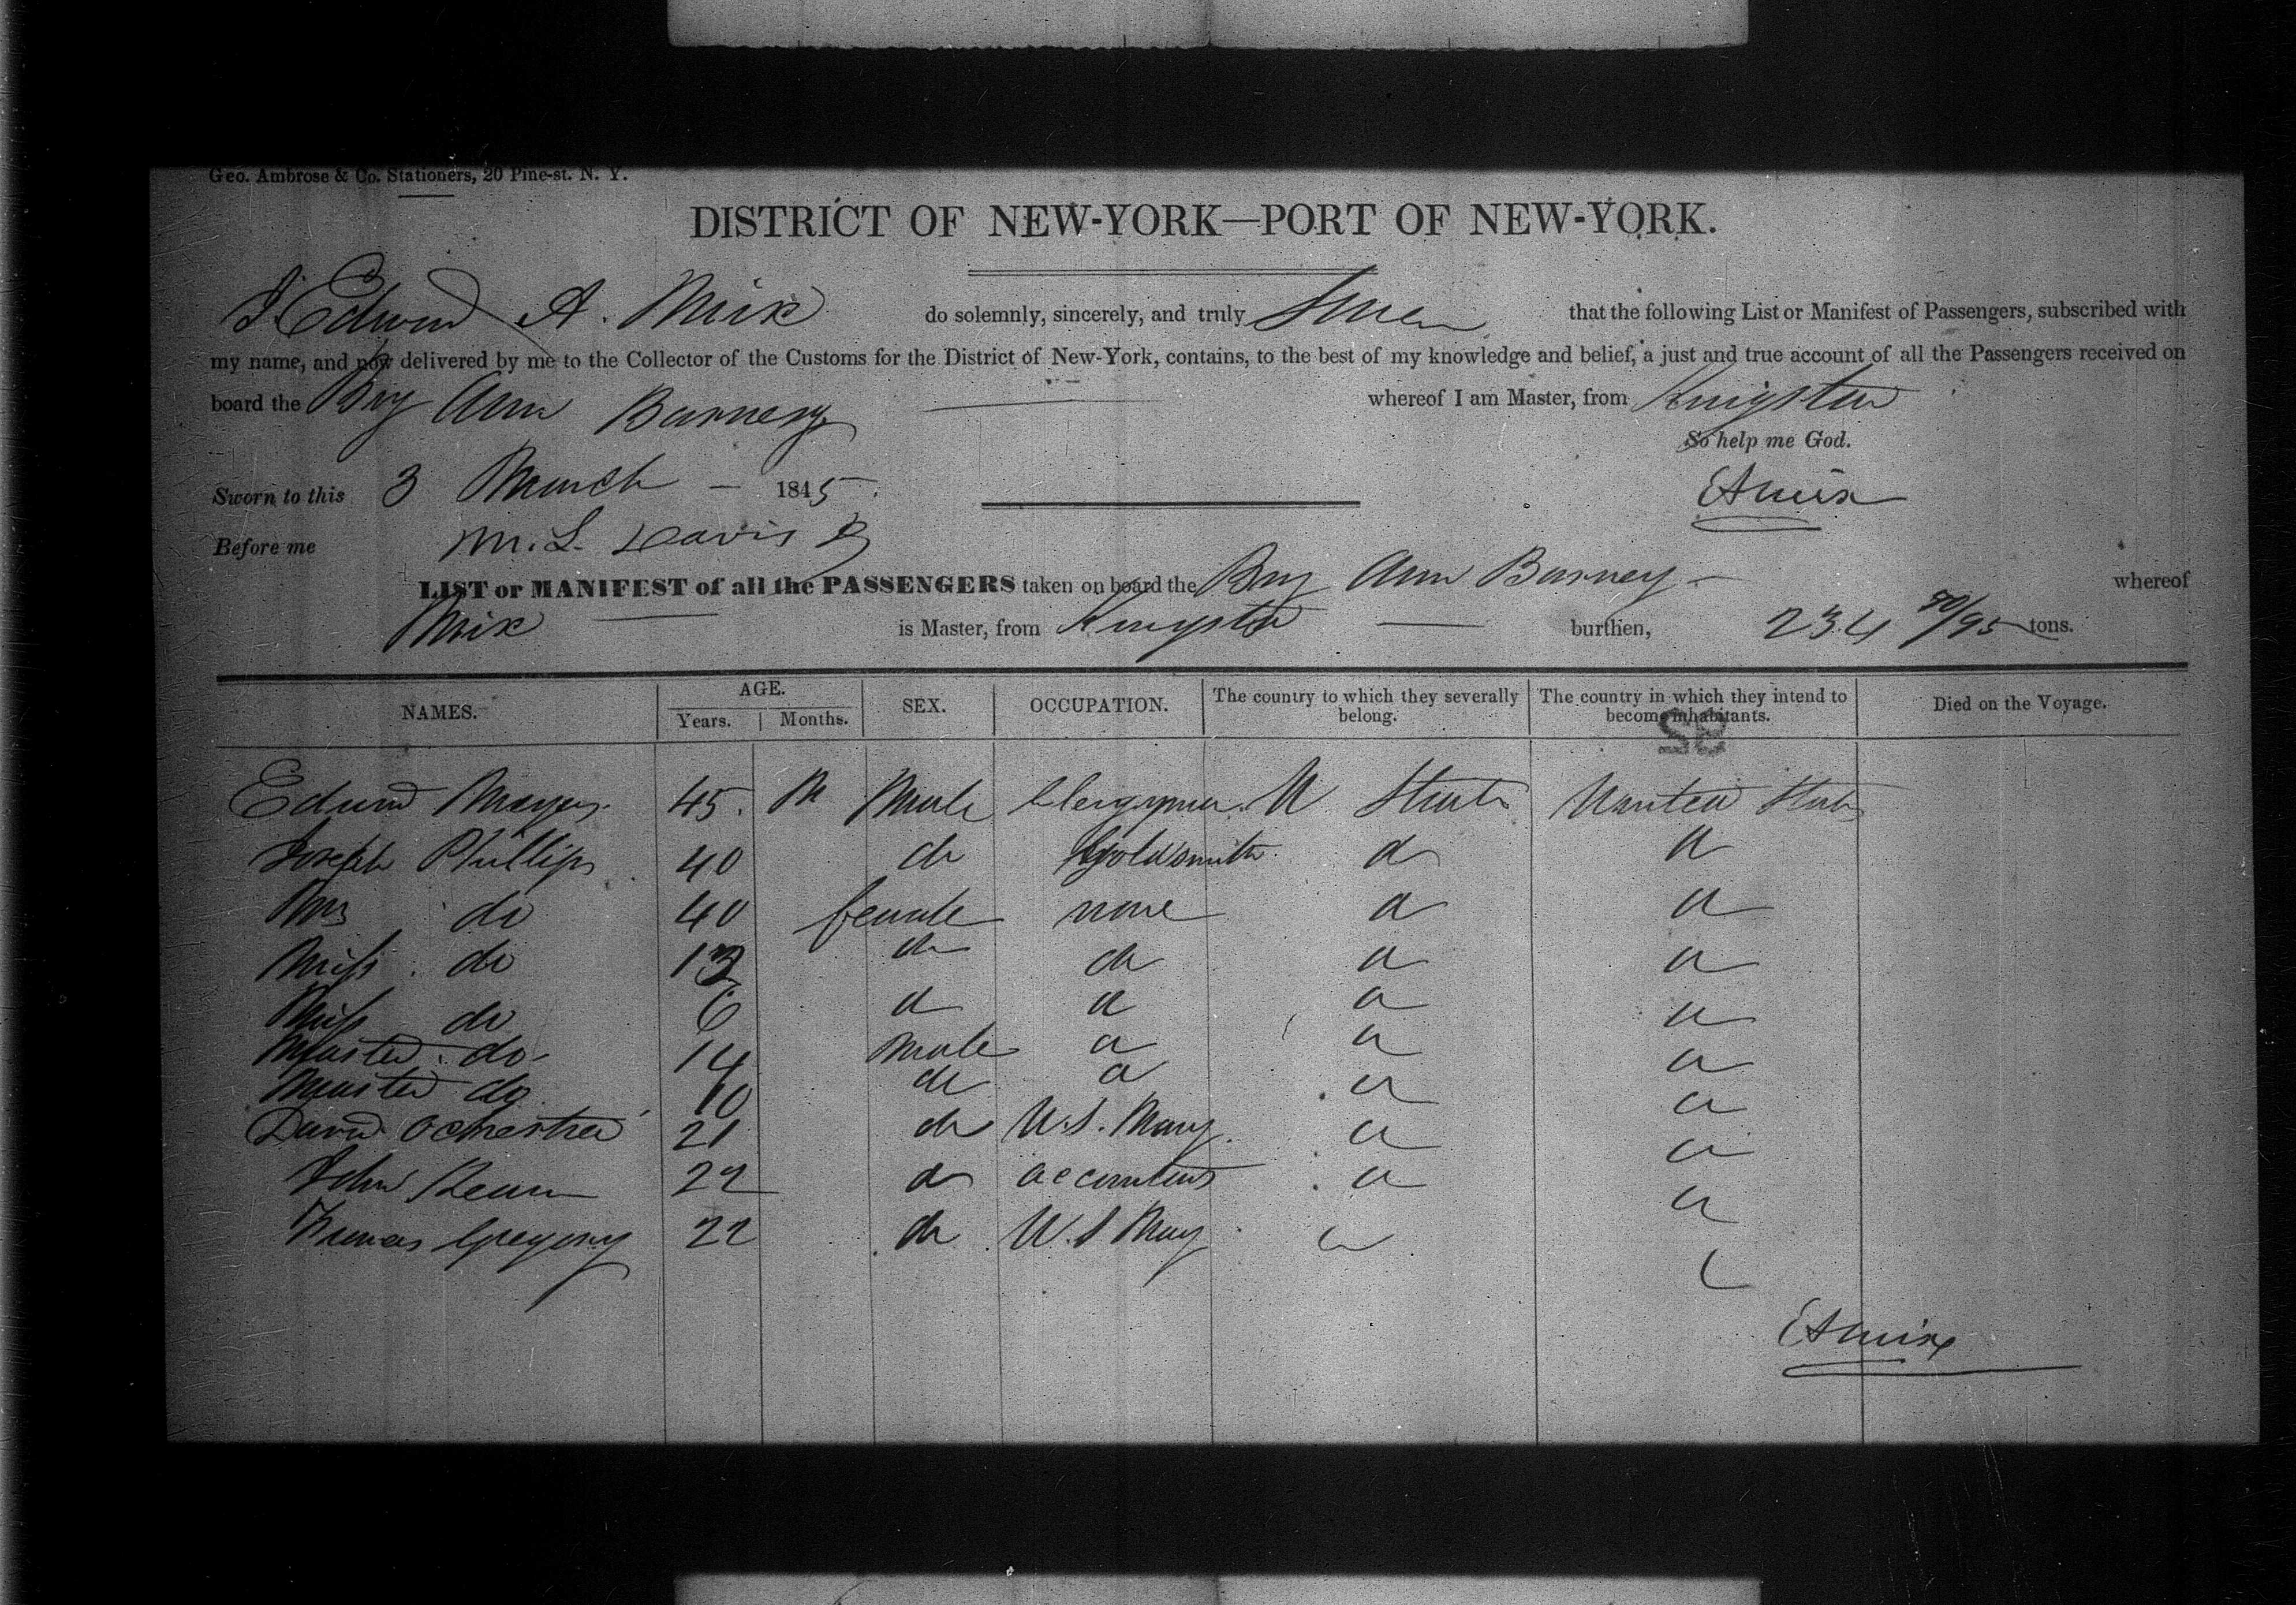 Geo. Ambrose & Co. Stationers, 20 Pine-st. N. Y.
DISTRICT OF NEW-YORK—PORT OF NEW-YORK.
I Edward A. Mix do solemnly, sincerely, and truly Swear that the following List or Manifest of Passengers, subscribed with
my name, and now delivered by me to the Collector of the Customs for the District of New-York, contains, to the best of my knowledge and belief, a just and true account of all the Passengers received on
board the Brig Ann Barney whereof I am Master, from Kingston
So help me God.
Sworn to this 3 March - 1845. EAMix
Before me M. L. Davis
LIST or MANIFEST of all the PASSENGERS taken on board the Brig Ann Barney - whereof
Mix is Master, from Kingston burthen, 234 90/95 tons.
NAMES. AGE. Years. Months. SEX. OCCUPATION. The country to which they severally belong. The country in which they intend to become inhabitants. Died on the Voyage.
92
Edward 45. M Male Clergyman. U States United States
Joseph Phillips 40 do Goldsmith do do
Mrs do 40 female none do do
Miss do 13 do do do do
Miss do 6 do do do do
Master do- 14 male do do do
Master do 10 do do do do
David 21 do U.S. Navy. do do
John 22 do accountant do do
Gregory 22 do U.S Navy
EAMix